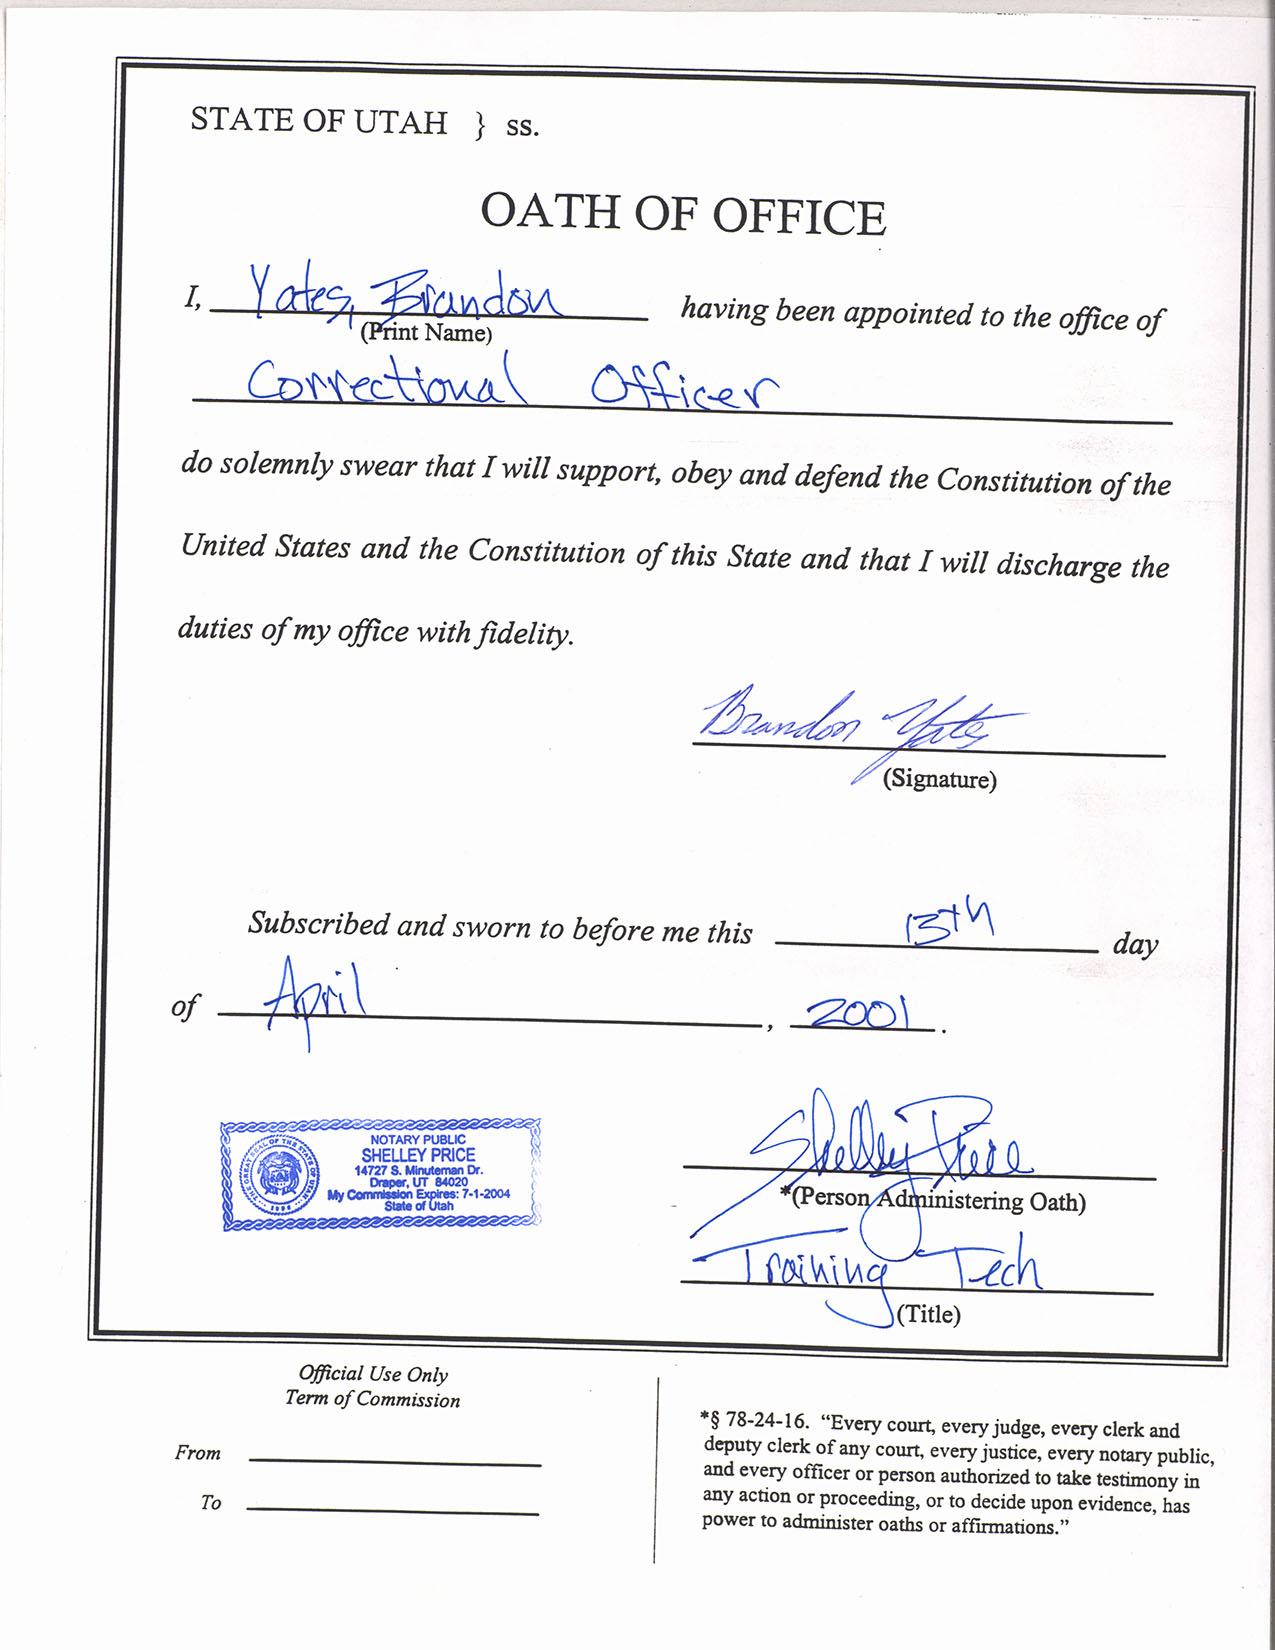 STATE OF UTAH } ss.
OATH OF OFFICE
I, Yates, Brandon having been appointed to the office of
(Print Name)
Correctional Officer
do solemnly swear that I will support, obey and defend the Constitution of the
United States and the Constitution of this State and that I will discharge the
duties of my office with fidelity.
Brandon Yates
(Signature)
Subscribed and sworn to before me this 13th day
of April, 2001.
Shelley Price
*(Person Administering Oath)
Training Tech
(Title)
THE GREAT SEAL OF THE STATE OF UTAH
1896
NOTARY PUBLIC
SHELLEY PRICE
14727 S. Minuteman Dr.
Draper, UT 84020
My Commission Expires: 7-1-2004
State of Utah
Official Use Only
Term of Commission
From
To
*§ 78-24-16. “Every court, every judge, every clerk and
deputy clerk of any court, every justice, every notary public,
and every officer or person authorized to take testimony in
any action or proceeding, or to decide upon evidence, has
power to administer oaths or affirmations.”